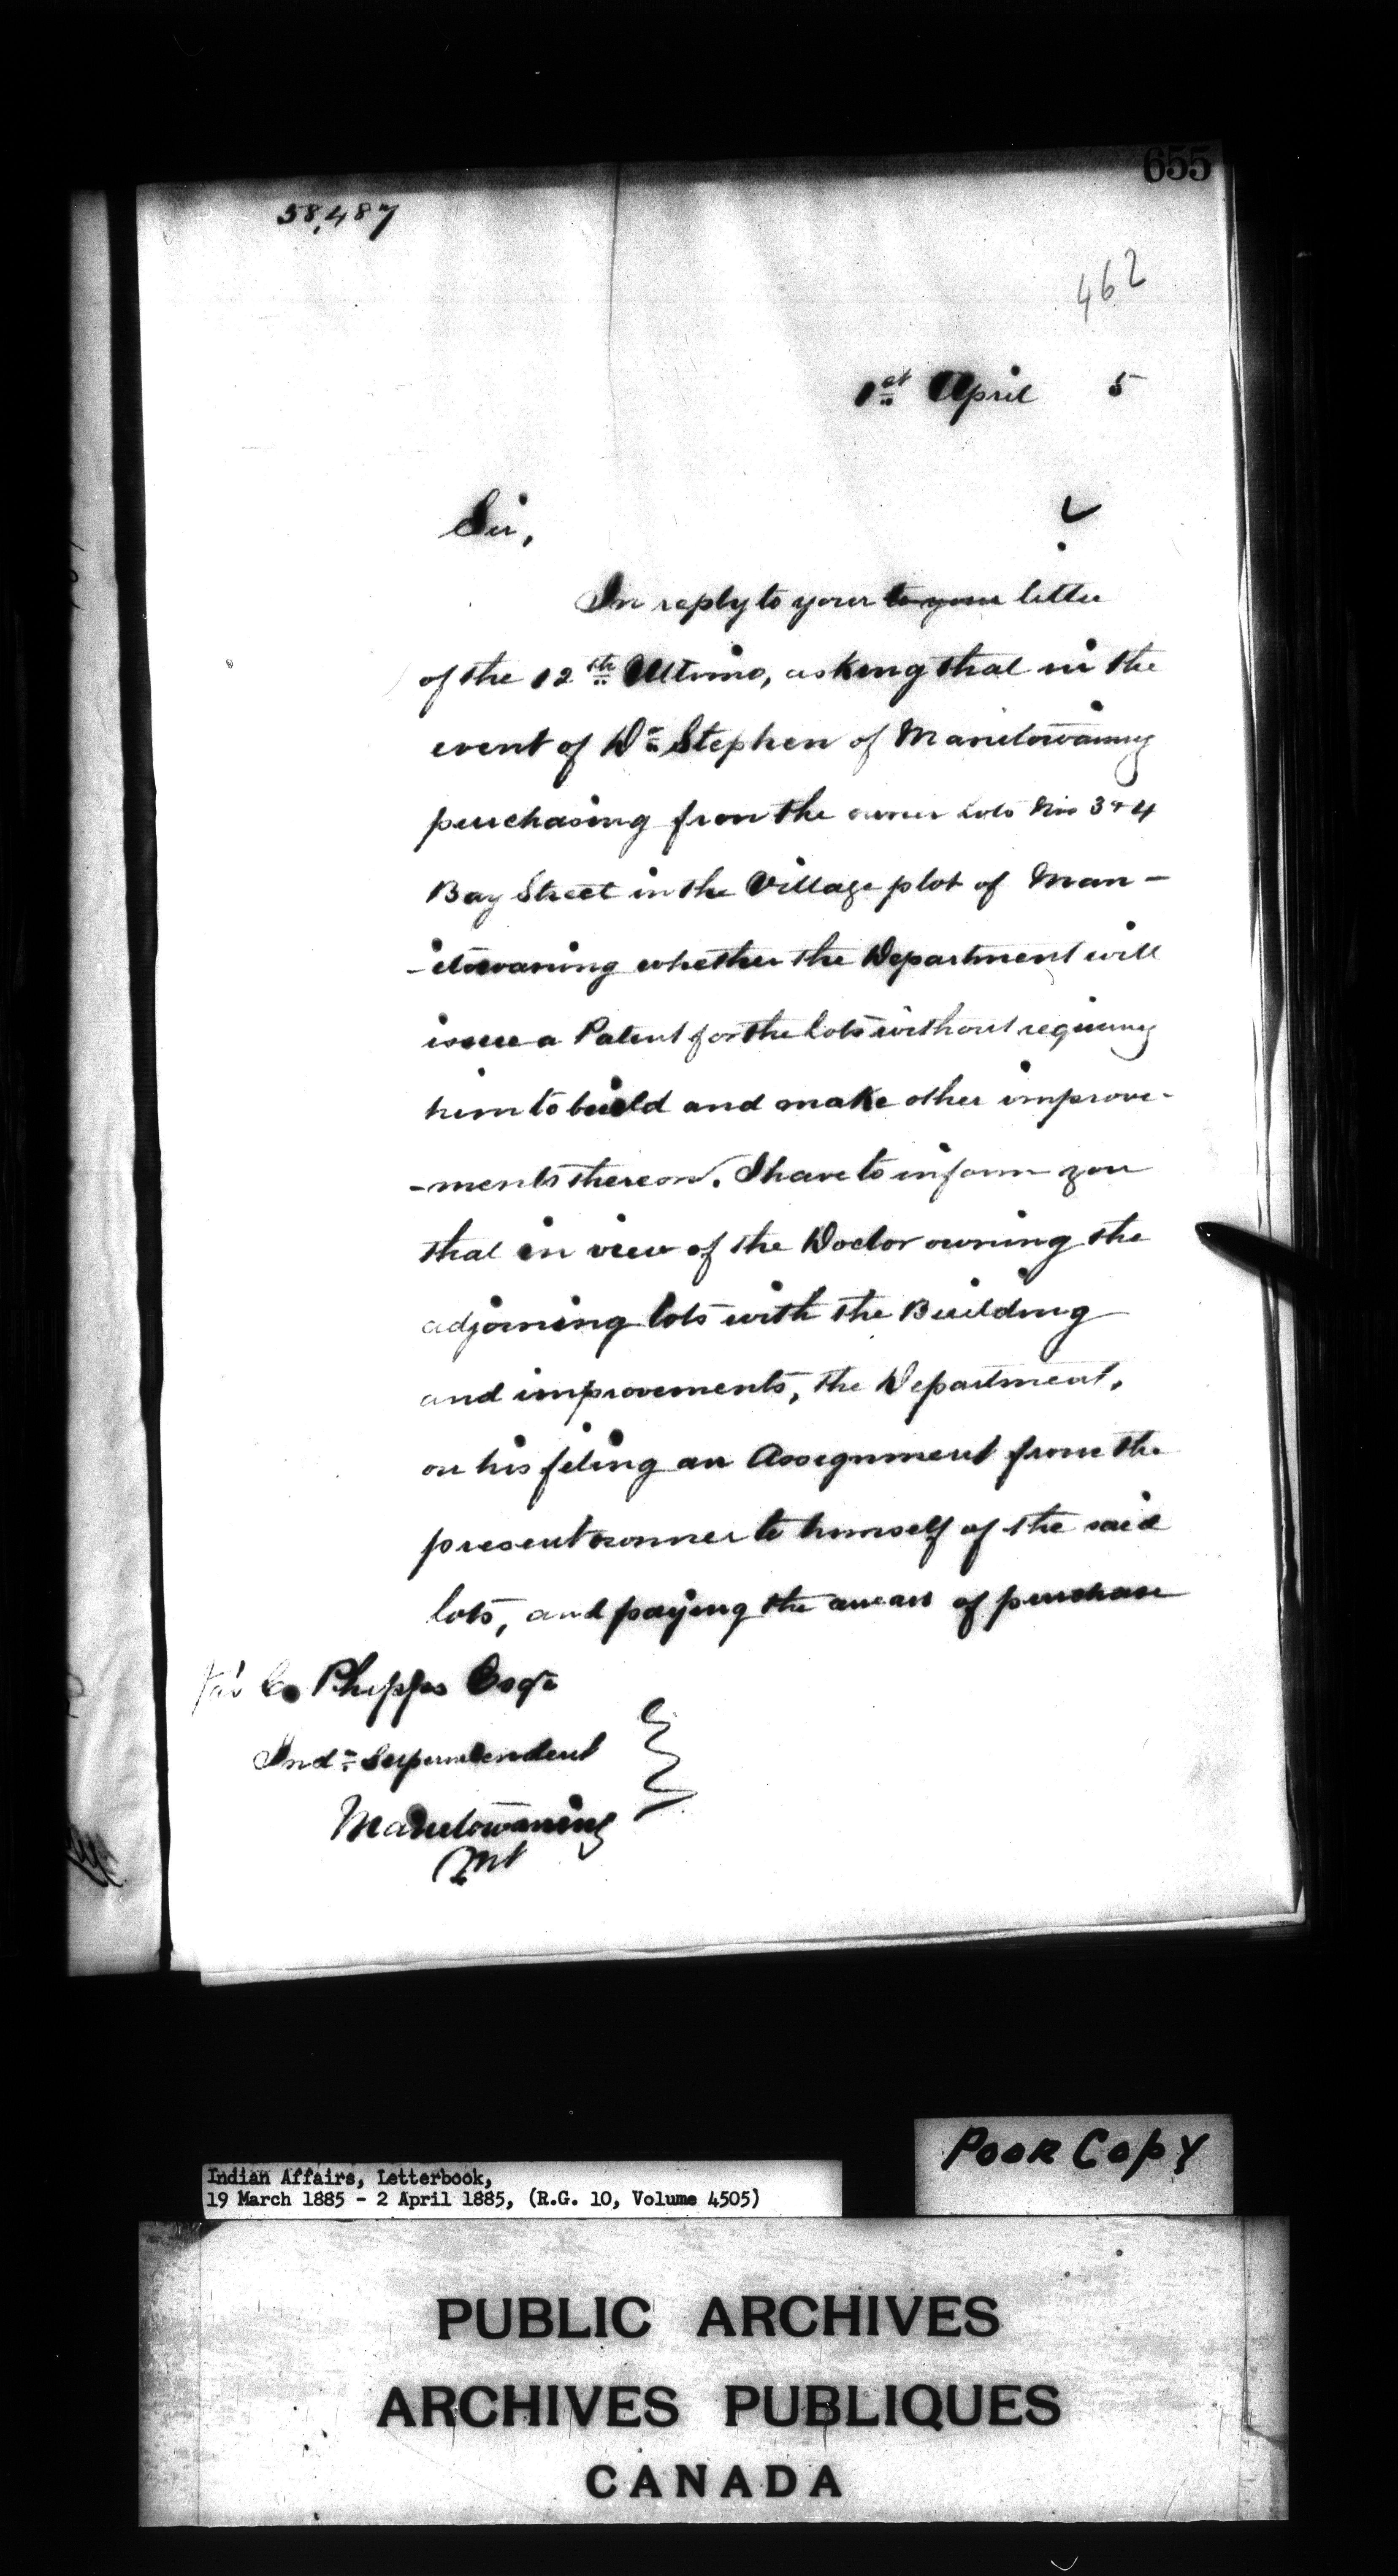 655
58,487
462
1st April 5
Sir,
In reply to your to your letter
of the 12th Ultimo, asking that in the
event of Dr Stephen of Manitowaning
purchasing from the owner Lots Nos 3 & 4
Bay Street in the Village plot of Man-
-itowaning whether the Department will
issue a Patent for the lots without requiring
him to build and make other improve-
-ments thereon. I have to inform you
that in view of the Doctor owning the
adjoining lots with the Building
and improvements, the Department,
on his filing an Assignment from the
present owner to himself of the said
lots, and paying the arrears of purchase
Phipps Esqr
Ind: Superintendent
Manitowaning
Ont
POOR COPY
Indian Affairs, Letterbook,
19 March 1885 - 2 April 1885, (R.G. 10, Volume 4505)
PUBLIC ARCHIVES
ARCHIVES PUBLIQUES
CANADA